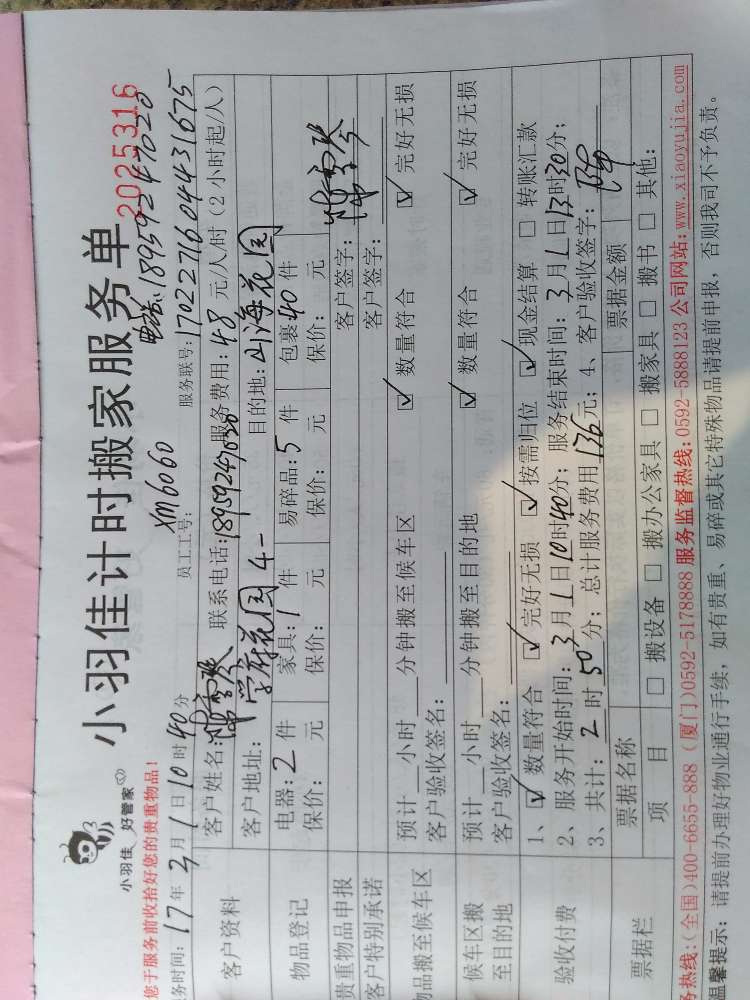 小羽佳 好管家
小羽佳计时搬家服务单
2025316
您于服务前收拾好您的贵重物品!
电话:18959247020
务时间: 17年3月1日10时40分 员工工号: XM6060 服务联号: 1702271604431675
客户资料
客户姓名: 联系电话: 服务费用: 48 元/人/时 (2小时起/人)
客户地址: 学府花园4- 目的地: 山海花园
物品登记
电器: 2 件 家具: 1 件 易碎品: 5 件 包裹 40 件
保价: 元 保价: 元 保价: 元 保价: 元
贵重物品申报 客户签字:
客户特别承诺 客户签字:
物品搬至候车区
预计__小时__分钟搬至候车区 ☑ 数量符合 ☑ 完好无损
客户验收签名:
候车区搬至目的地
预计__小时__分钟搬至目的地 ☑ 数量符合 ☑ 完好无损
客户验收签名:
验收付费
1、☑ 数量符合 ☑ 完好无损 ☑ 按需归位 ☑ 现金结算 □ 转账汇款
2、服务开始时间: 3月1日10时40分; 服务结束时间: 3月1日13时30分;
3、共计: 2时50分; 总计服务费用 136元; 4、客户验收签字:
票据栏
票据名称 票据金额
项目 □ 搬设备 □ 搬办公家具 □ 搬家具 □ 搬书 □ 其他:
务热线:(全国)400-6655-888 (厦门)0592-5178888 服务监督热线:0592-5888123 公司网站:www.xiaoyujia.com
温馨提示: 请提前办理好物业通行手续, 如有贵重、易碎或其它特殊物品请提前申报, 否则我司不予负责。